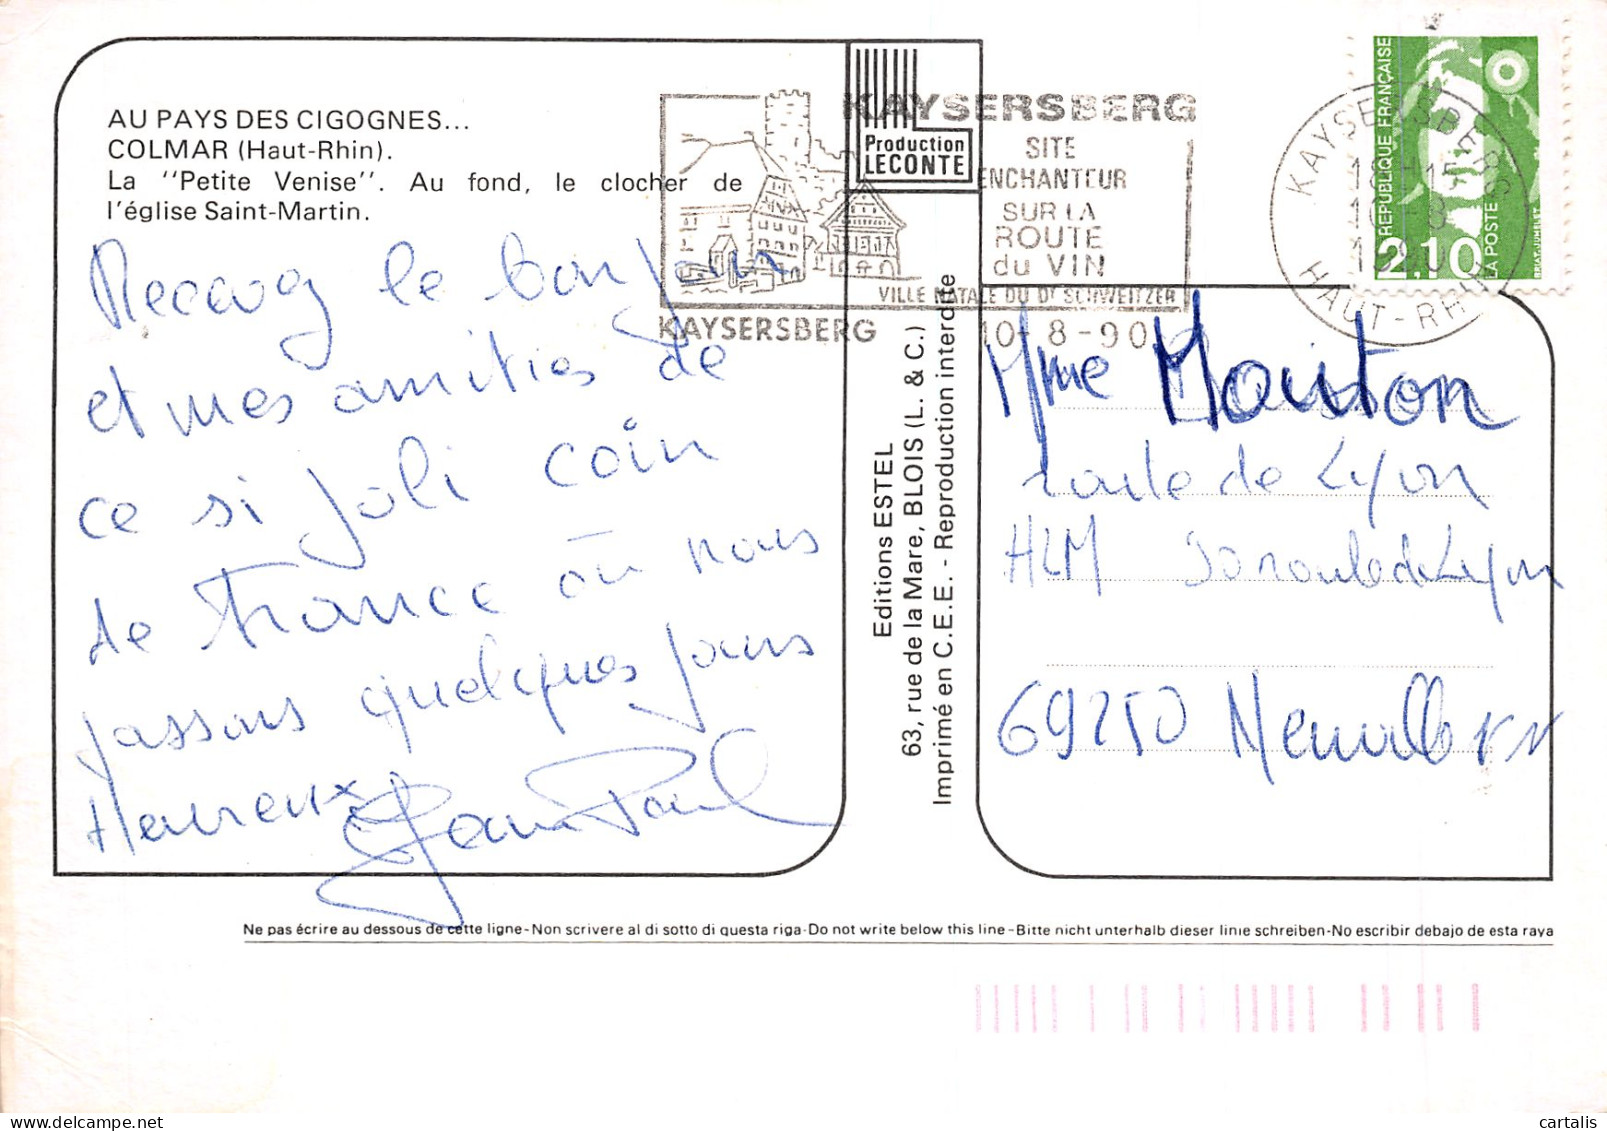 AU PAYS DES CIGOGNES...
COLMAR (Haut-Rhin).
La "Petite Venise". Au fond, le clocher de
l'église Saint-Martin.
Recevez le bonjour
et mes amitiés de
ce si joli coin
de France où nous
passons quelques jours
Heureux
Jean Paul
Production
LECONTE
KAYSERSBERG
SITE
ENCHANTEUR
SUR LA
ROUTE
du VIN
VILLE NATALE DU Dr SCHWEITZER
KAYSERSBERG
10-8-90
KAYSERSBERG
18H15
10-8
HAUT-RHIN
REPUBLIQUE FRANÇAISE
2,10
LA POSTE
Editions ESTEL
63, rue de la Mare, BLOIS (L. & C.)
Imprimé en C.E.E. - Reproduction interdite
Mme Mouton
route de Lyon
HLM route de Lyon
69250 Neuville s/s
Ne pas écrire au dessous de cette ligne-Non scrivere al di sotto di questa riga-Do not write below this line-Bitte nicht unterhalb dieser linie schreiben-No escribir debajo de esta raya
cartalis